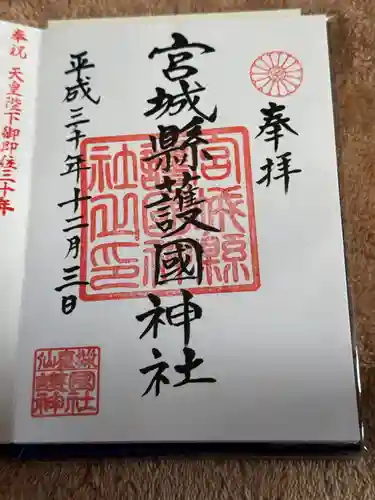 奉拝
宮城縣護國神社
平成三十年十二月三日
奉祝 天皇陛下御即位三十年
宮城縣
護國神
社之印